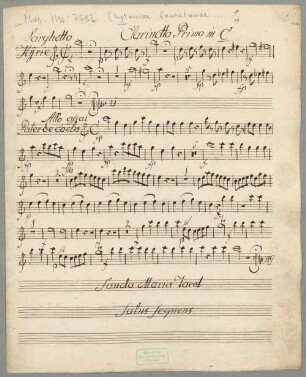 Mus. Mss. 7582 Lytaniae Lauretanae
Larghetto Clarinetto Primo in C
Kÿrie
Allo assai
Pater de coelis
Sancta Maria Tacet
Salus sequens